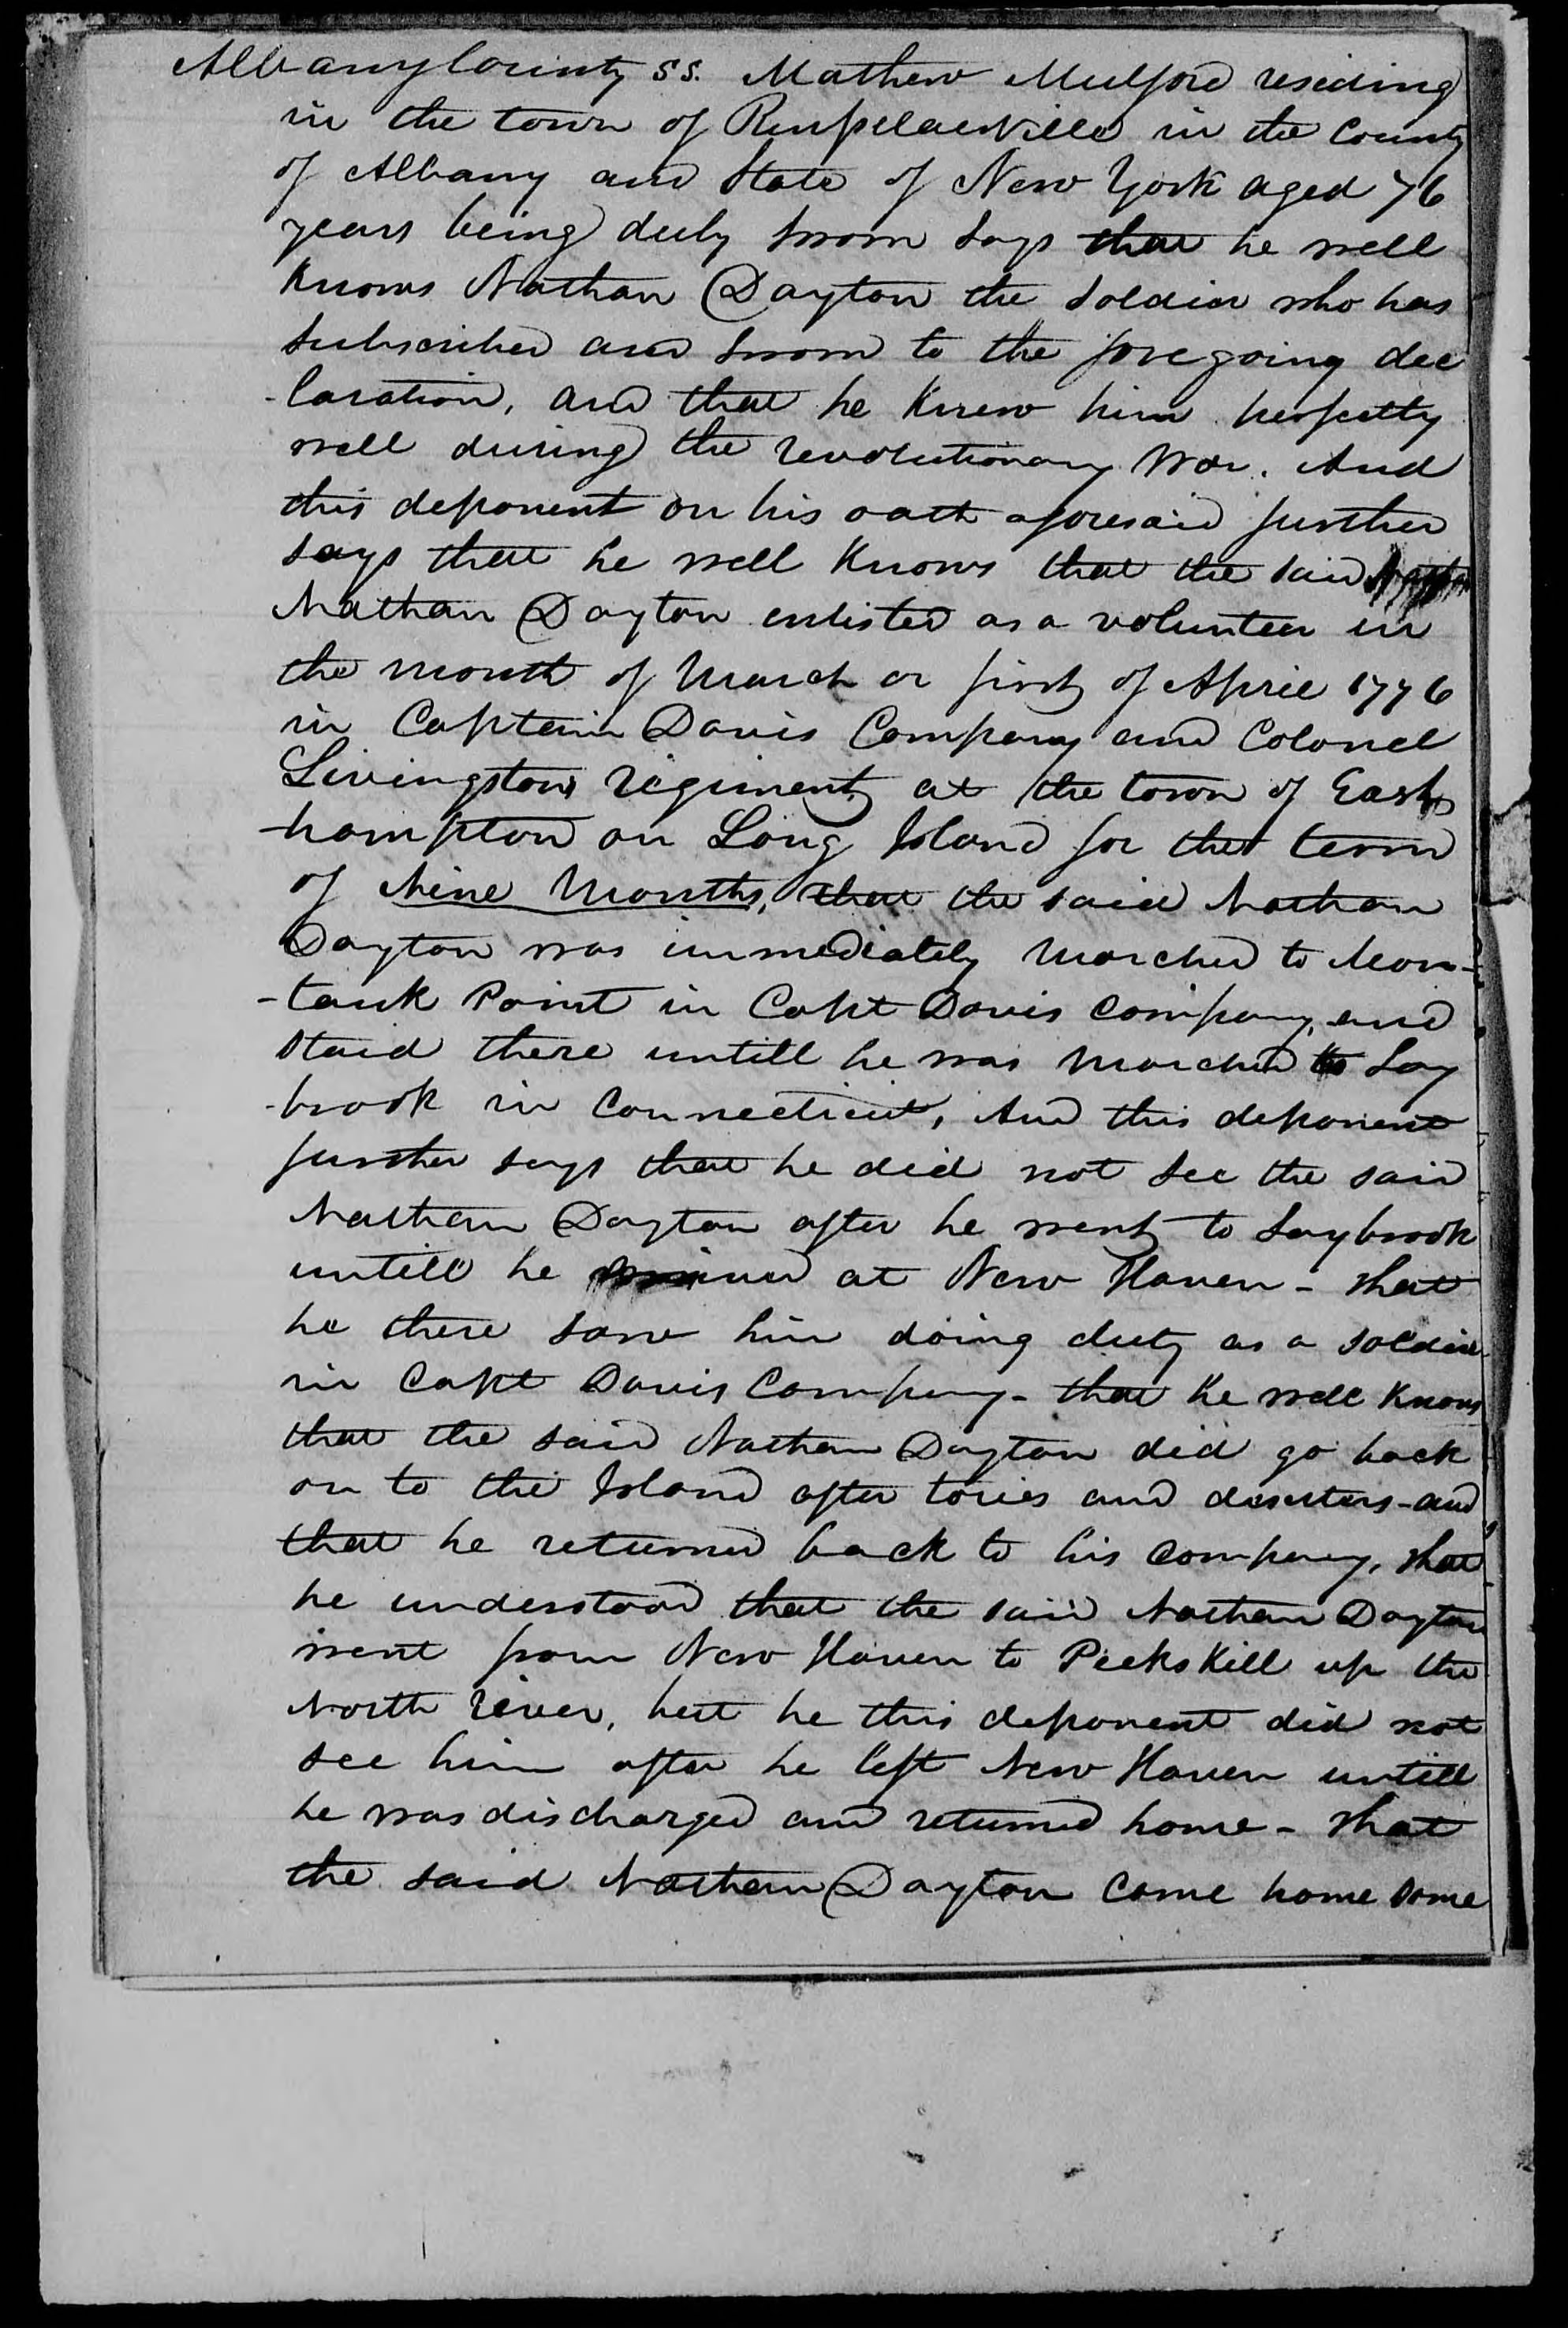 Albany County ss. Mathew Mulford residing
in the town of Rensselaerville in the County
of Albany and State of New York aged 76
years being duly sworn says that he well
knows Nathan Dayton the soldier who has
subscribed and sworn to the foregoing dec
-laration, and that he knew him perfectly
well during the revolutionary War. And
this deponent on his oath aforesaid further
says that he well knows that the said
Nathan Dayton enlisted as a volunteer in
the month of March or first of April 1776
in Captain Davis Company and Colonel
Livingstons regiment at the town of East
-hampton on Long Island for the term
of Nine Months, that the said Nathan
Dayton was immediately marched to Mon-
-tauk Point in Capt Davis company, and
staid there untill he was marched to Say
-brook in Connecticut, And this deponent
further says that he did not see the said
Nathan Dayton after he went to Saybrook
untill he arrived at New Haven - that
he there saw him doing duty as a soldier
in Capt Davis Company - that he well knows
that the said Nathan Dayton did go back
on to the Island after tories and deserters - and
that he returned back to his company, that
he understood that the said Nathan Dayton
went from New Haven to Peekskill up the
North river, but he this deponent did not
see him after he left New Haven untill
he was discharged and returned home - that
the said Nathan Dayton came home some